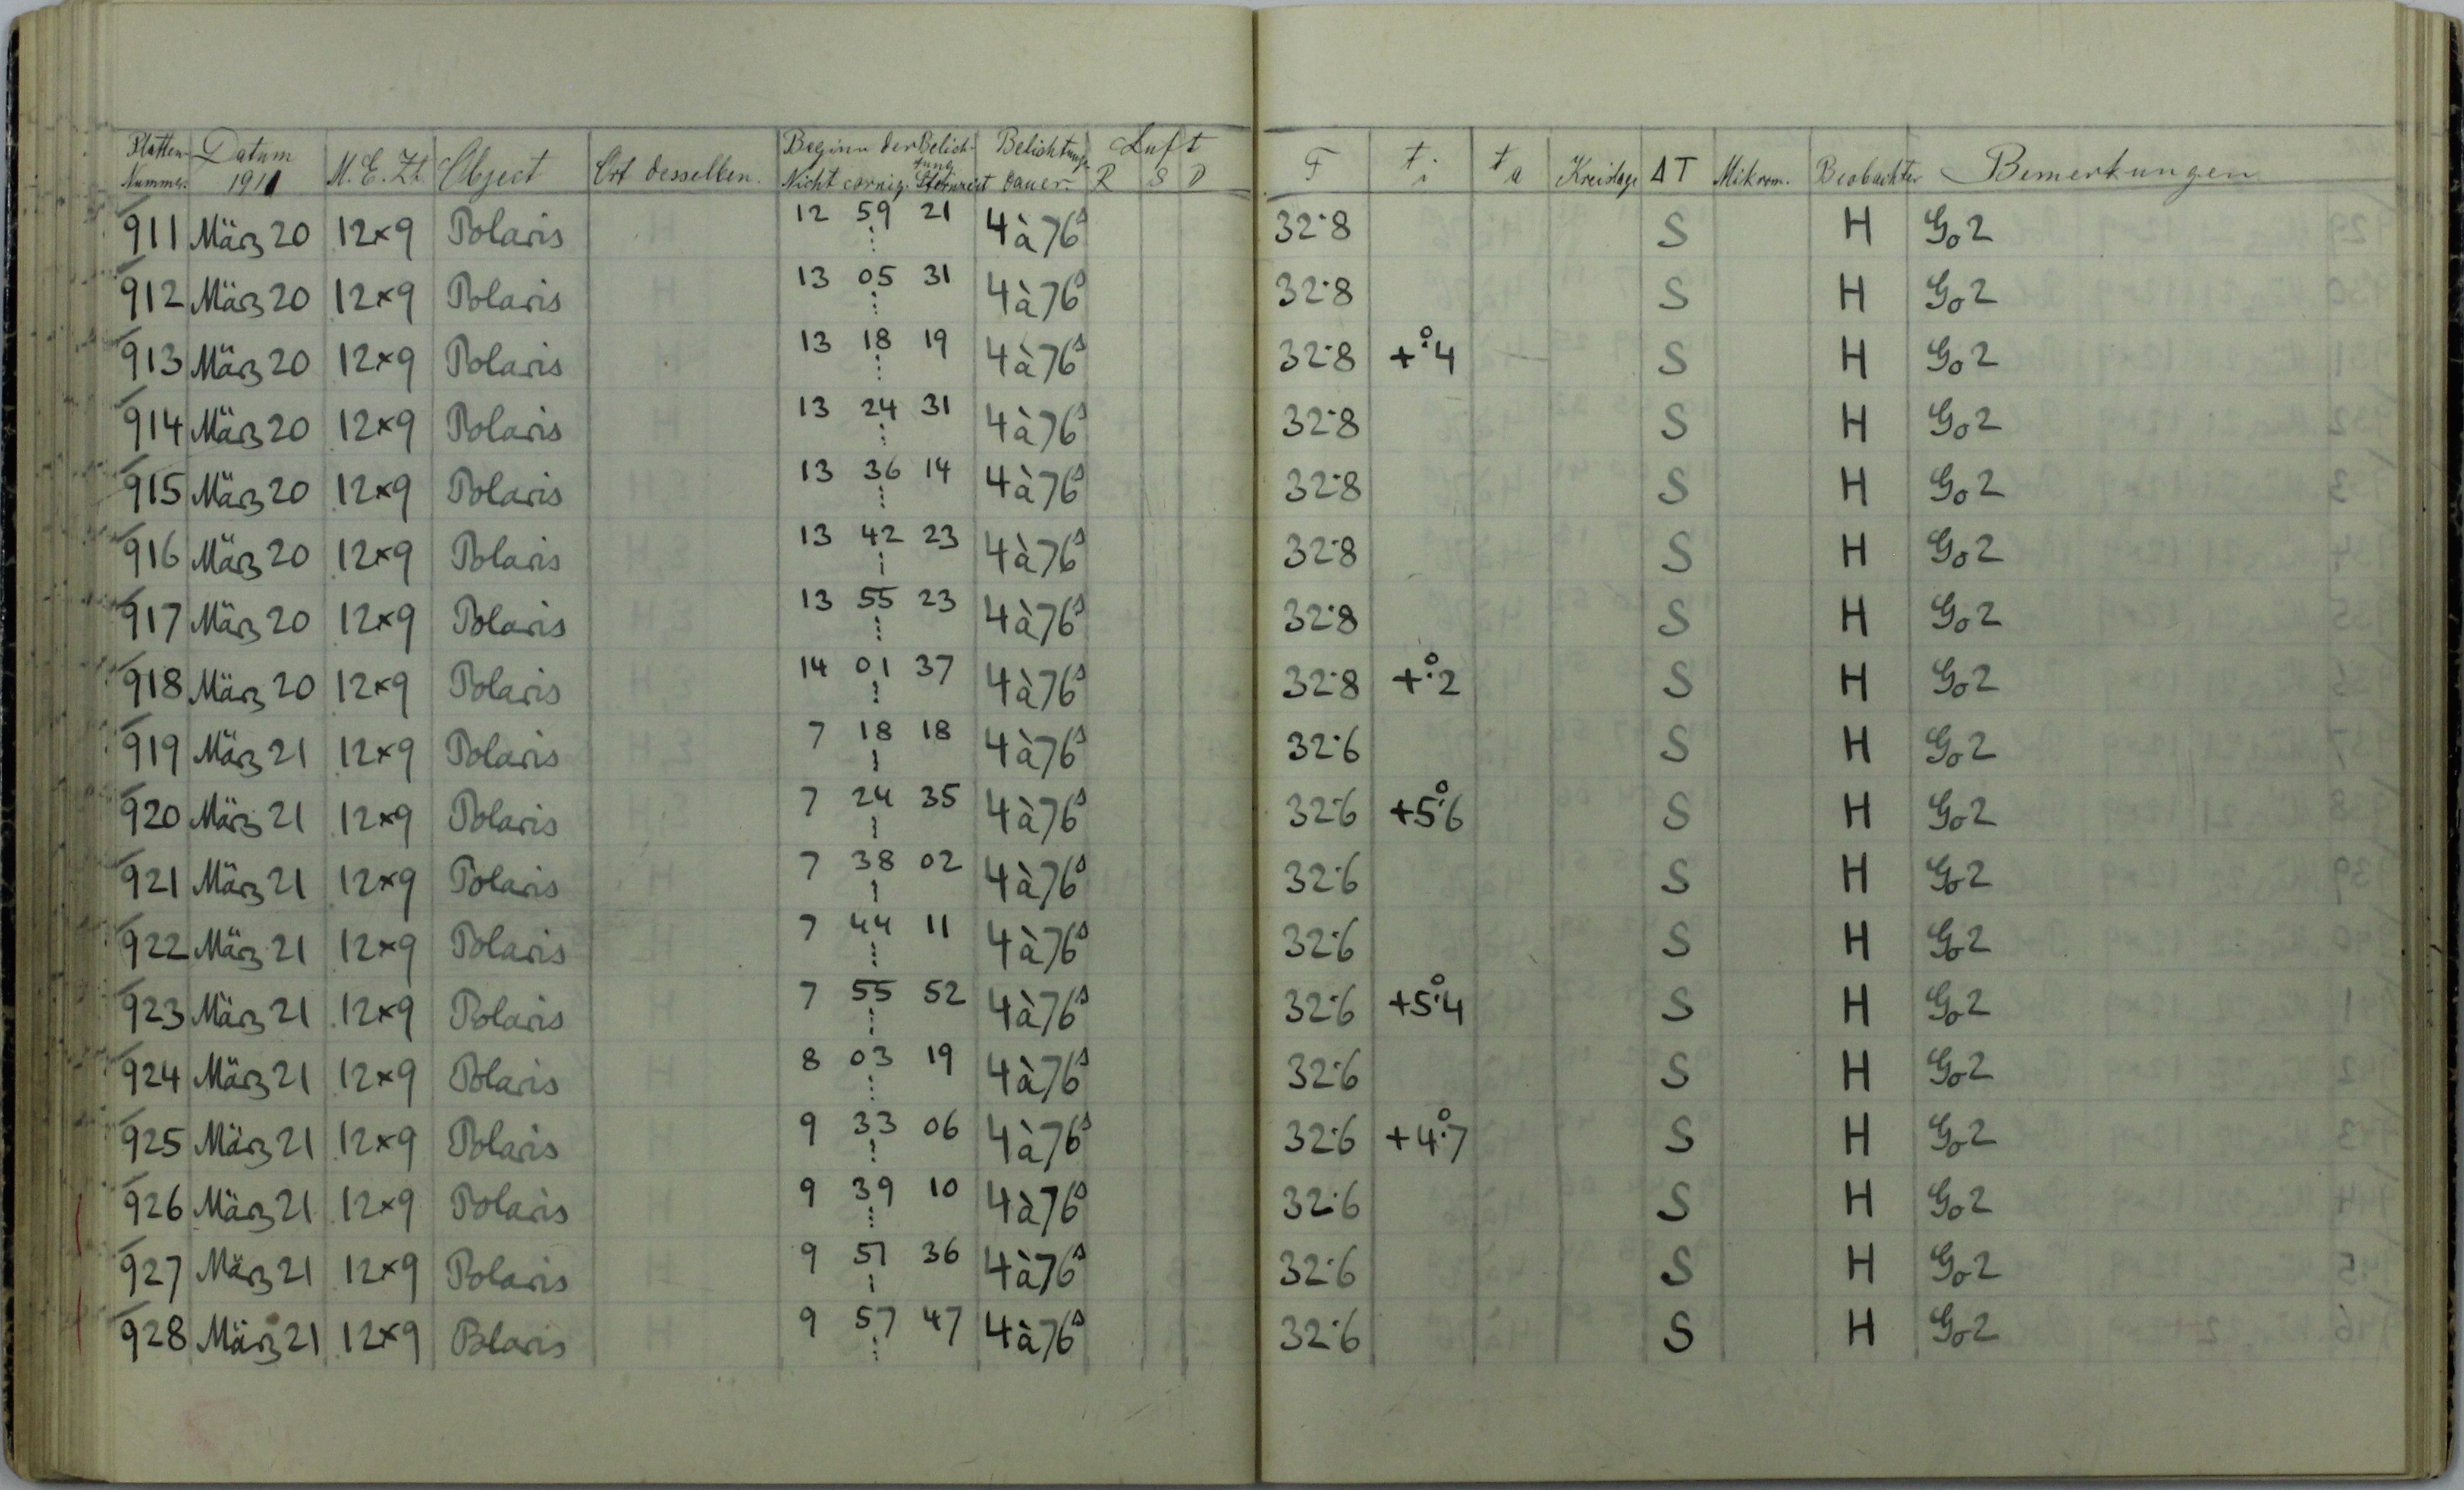 Platten- Nummer. Datum 1911 M.E.Zt. Object Ort desselben. Beginn der Belichtung Nicht corrig. Sternzeit Belichtungsdauer. Luft R S D F ti ta Kreislage ΔT Mikrom. Beobachter Bemerkungen
911 März 20 12×9 Polaris 12 59 21 4 à 76s 32.8 S H Go 2
912 März 20 12×9 Polaris 13 05 31 4 à 76s 32.8 S H Go 2
913 März 20 12×9 Polaris 13 18 19 4 à 76s 32.8 +°.4 S H Go 2
914 März 20 12×9 Polaris 13 24 31 4 à 76s 32.8 S H Go 2
915 März 20 12×9 Polaris 13 36 14 4 à 76s 32.8 S H Go 2
916 März 20 12×9 Polaris 13 42 23 4 à 76s 32.8 S H Go 2
917 März 20 12×9 Polaris 13 55 23 4 à 76s 32.8 S H Go 2
918 März 20 12×9 Polaris 14 01 37 4 à 76s 32.8 +°.2 S H Go 2
919 März 21 12×9 Polaris 7 18 18 4 à 76s 32.6 S H Go 2
920 März 21 12×9 Polaris 7 24 35 4 à 76s 32.6 +5°.6 S H Go 2
921 März 21 12×9 Polaris 7 38 02 4 à 76s 32.6 S H Go 2
922 März 21 12×9 Polaris 7 44 11 4 à 76s 32.6 S H Go 2
923 März 21 12×9 Polaris 7 55 52 4 à 76s 32.6 +5°.4 S H Go 2
924 März 21 12×9 Polaris 8 03 19 4 à 76s 32.6 S H Go 2
925 März 21 12×9 Polaris 9 33 06 4 à 76s 32.6 +4°.7 S H Go 2
926 März 21 12×9 Polaris 9 39 10 4 à 76s 32.6 S H Go 2
927 März 21 12×9 Polaris 9 51 36 4 à 76s 32.6 S H Go 2
928 März 21 12×9 Polaris 9 57 47 4 à 76s 32.6 S H Go 2